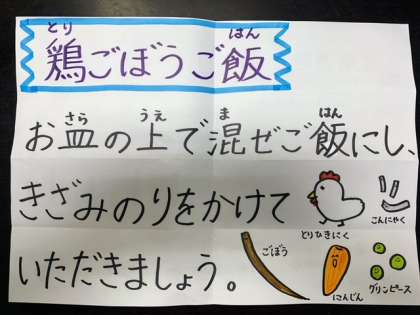 とり はん
鶏ごぼうご飯
さら うえ ま はん
お皿の上で混ぜご飯にし、
きざみのりをかけて
こんにゃく
とりひきにく
いただきましょう。
ごぼう
にんじん
グリンピース